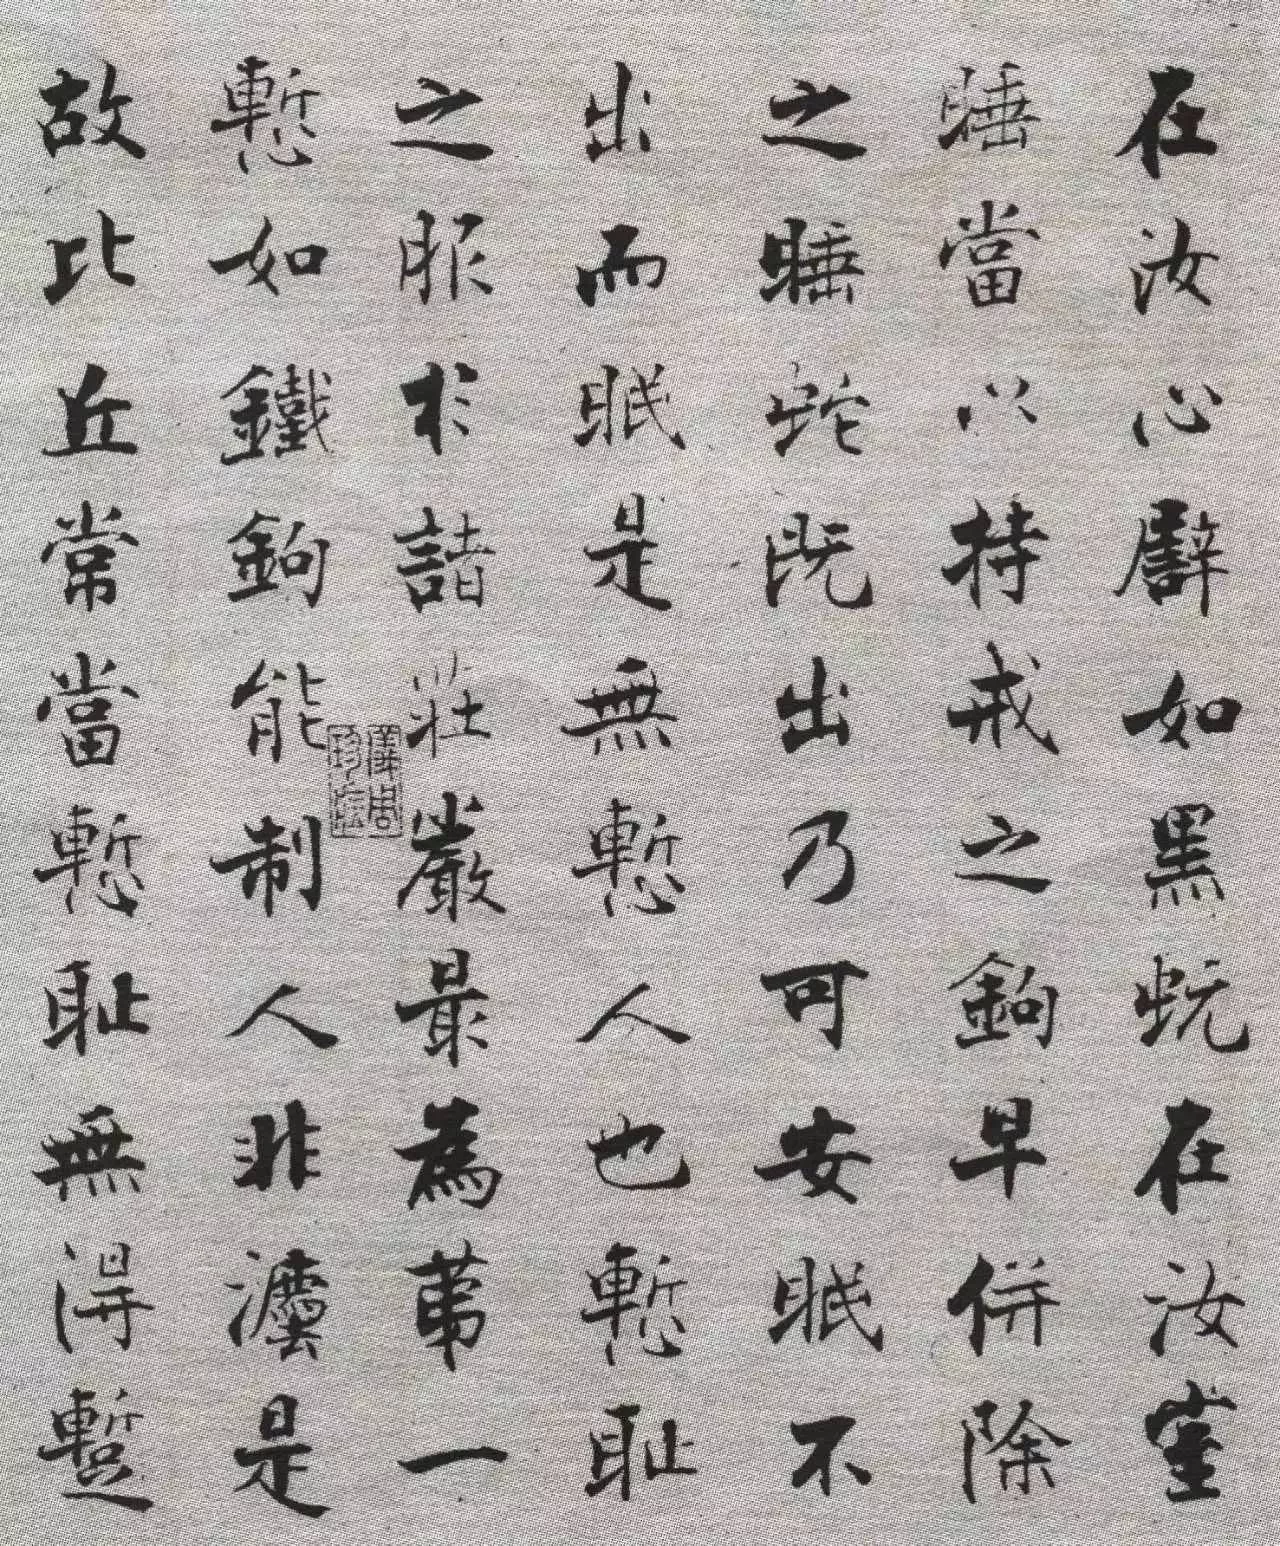 在汝心譬如黑蚖在汝室
睡當以持戒之鉤早併除
之睡蛇既出乃可安眠不
出而眠是無慙人也慙耻
之服於諸莊嚴最為第一
慙如鐵鉤能制人非法是
故比丘常當慙耻無得蹔